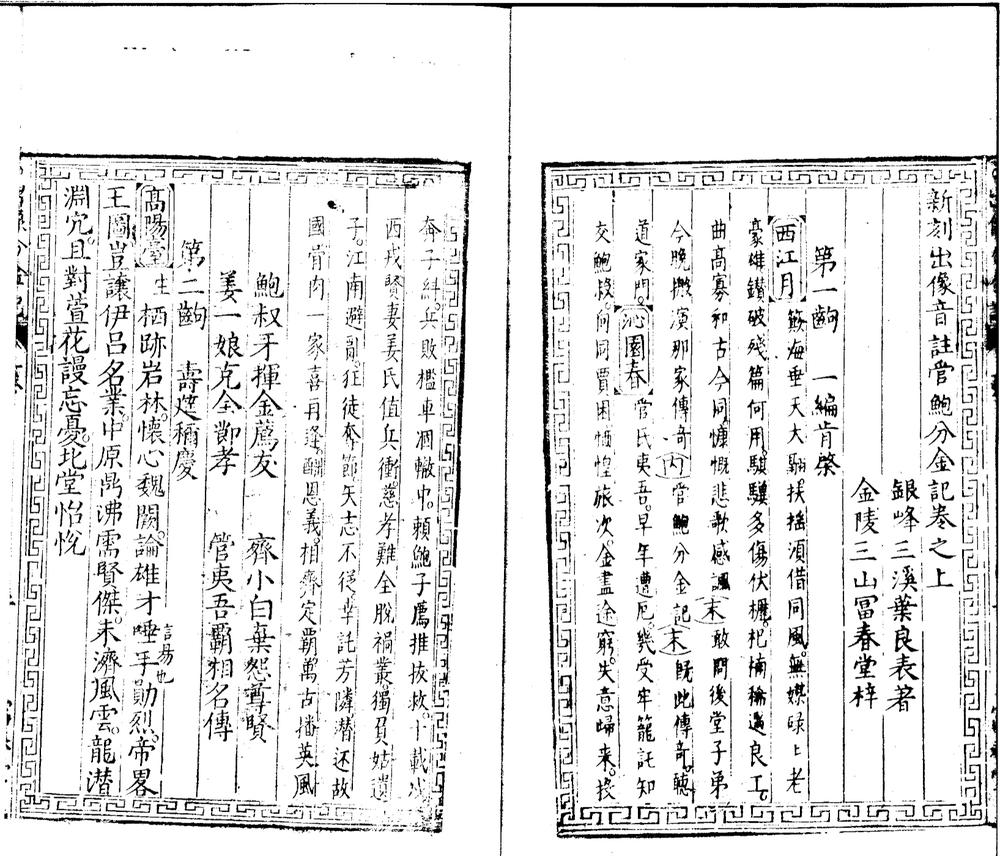 新刻出像音註管鮑分金記卷之上
銀峰三溪葉良表著
金陵三山富春堂梓
第一齣　一編肯綮
西江月　鯨海垂天大翮扶搖須借同風無媒碌碌老
豪雄鑽破殘篇何用騏驥多傷伏櫪杞楠稱遇良工
曲高寡和古今同慷慨悲歌感諷末敢問後堂子弟
今晚搬演那家傳奇內管鮑分金記末既此傳奇聽
道家門沁園春管氏夷吾早年遭厄幾受牢籠託知
交鮑叔何同賈困恓惶旅次金盡途窮失意歸來投
奔子糾兵敗檻車涸轍中賴鮑子薦推拔救十載戍
西戎賢妻姜氏值兵衝慈孝難全脫禍叢獨負姑遺
子江南避亂狂徒奪節矢志不從幸託芳隣潛還故
國骨肉一家喜再逢酬恩義相齊定覇萬古播英風
鮑叔牙揮金薦友　齊小白棄怨尊賢
姜一娘克全節孝　管夷吾覇相名傳
第二齣　壽筵稱慶
高陽臺　生栖跡岩林懷心魏闕論雄才唾手言易也勛烈帝畧
王圖豈讓伊呂名業中原鼎沸需賢傑未濟風雲龍潛
淵穴且對萱花謾忘憂北堂怡悅